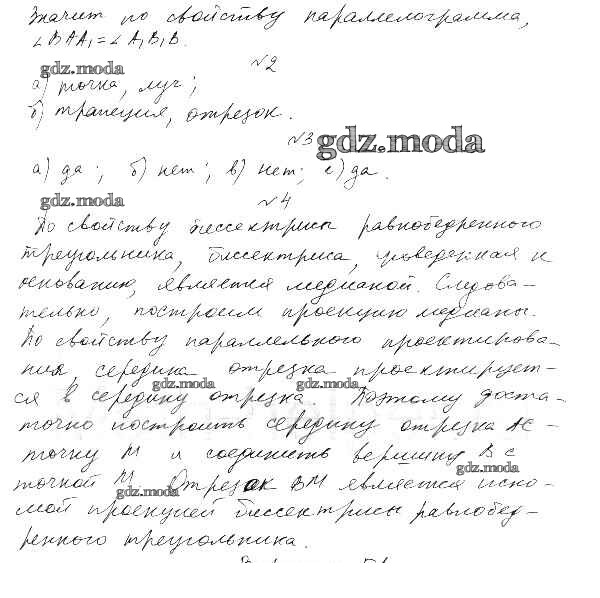 Значит по свойству параллелограмма,
∠BAA₁=∠A₁B₁B.
gdz.moda №2
а) точка, луч;
б) трапеция, отрезок.
№3 gdz.moda
а) да; б) нет; в) нет; г) да.
gdz.moda №4
По свойству биссектрисы равнобедренного
треугольника, биссектриса, проведенная к
основанию, является медианой. Следова-
тельно, построим проекцию медианы.
По свойству параллельного проектирова-
ния, середина отрезка проектирует-
gdz.moda gdz.moda
ся в середину отрезка. Поэтому доста-
точно построить середину отрезка AC-
точку M и соединить вершину B с
gdz.moda
точкой M. Отрезок BM является иско-
gdz.moda
мой проекцией биссектрисы равнобед-
ренного треугольника.